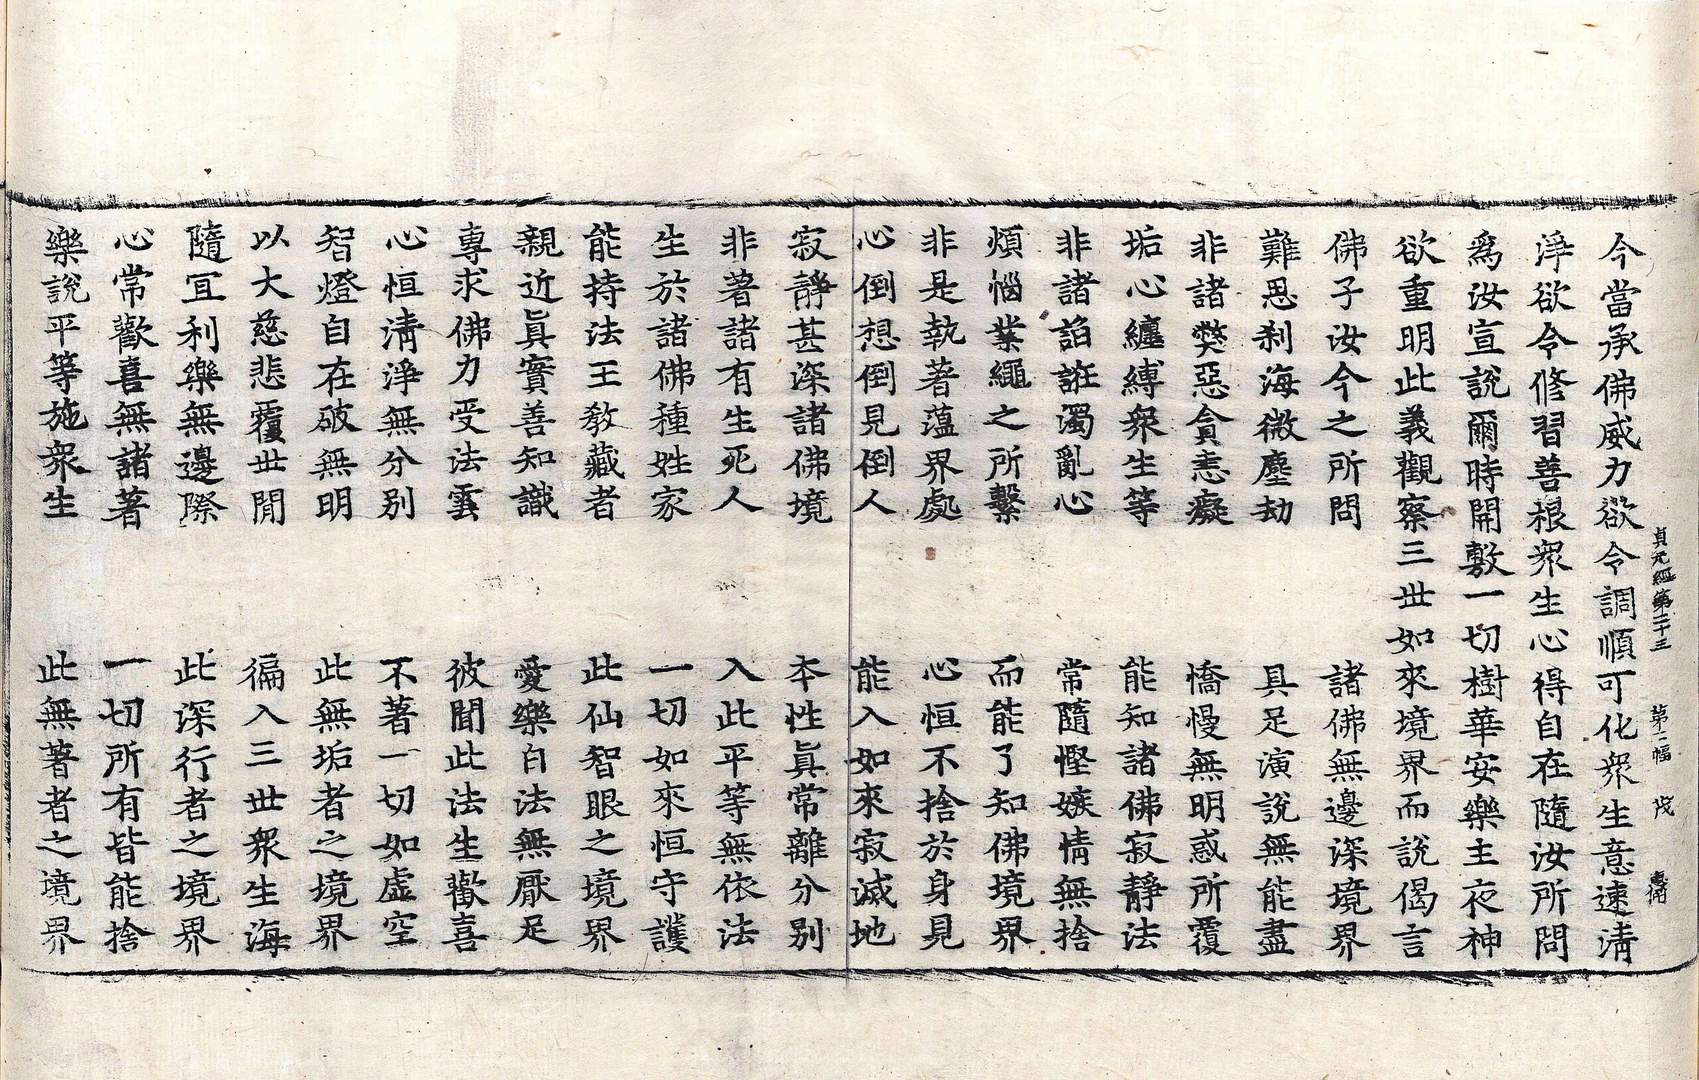 貞元經第二十三　第二幅　戌
今當承佛威力欲令調順可化衆生意速清
淨欲令修習善根衆生心得自在隨汝所問
爲汝宣說爾時開敷一切樹華安樂主夜神
欲重明此義觀察三世如來境界而說偈言
佛子汝今之所問　諸佛無邊深境界
難思刹海微塵劫　具足演說無能盡
非諸獘惡貪恚癡　憍慢無明惑所覆
垢心纏縛衆生等　能知諸佛寂靜法
非諸諂誑濁亂心　常隨慳嫉情無捨
煩惱業繩之所繫　而能了知佛境界
非是執著蘊界處　心恒不捨於身見
心倒想倒見倒人　能入如來寂滅地
寂靜甚深諸佛境　本性眞常離分別
非著諸有生死人　入此平等無依法
生於諸佛種姓家　一切如來恒守護
能持法王教藏者　此仙智眼之境界
親近眞實善知識　愛樂白法無厭足
專求佛力受法雲　彼聞此法生歡喜
心恒清淨無分別　不著一切如虛空
智燈自在破無明　此無垢者之境界
以大慈悲覆世間　徧入三世衆生海
隨宜利樂無邊際　此深行者之境界
心常歡喜無諸著　一切所有皆能捨
樂說平等施衆生　此無著者之境界